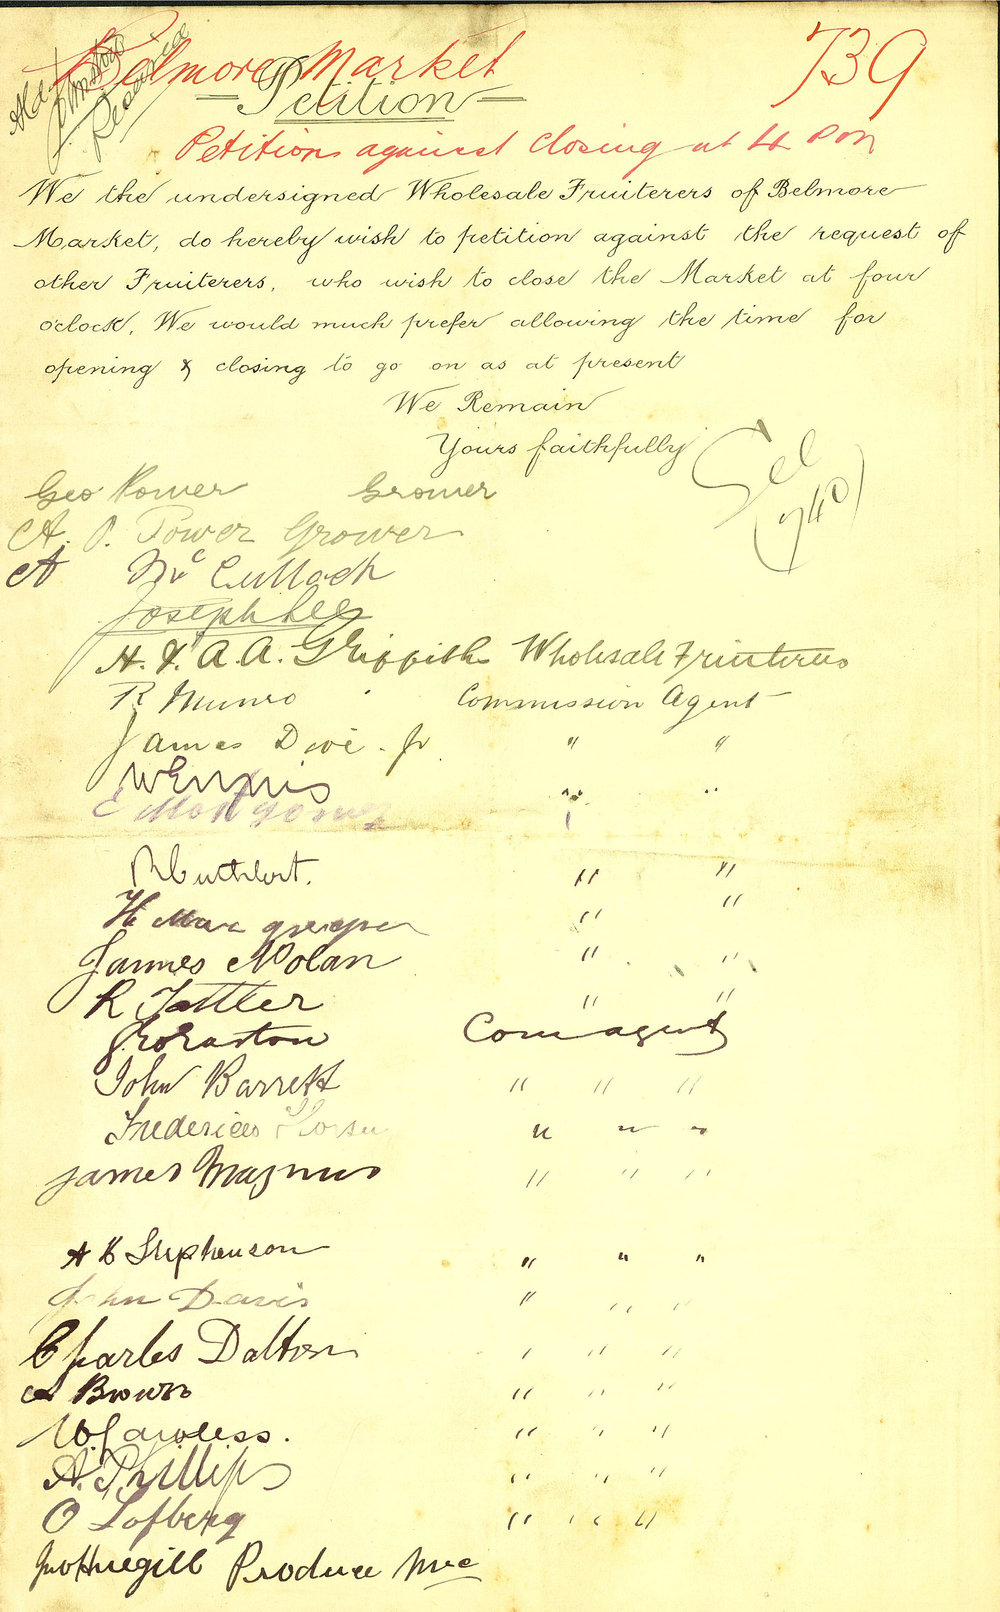 Belmore Market
739
— Petition —
Petitions against closing at 4 PM
We the undersigned Wholesale Fruiterers of Belmore
Market, do hereby wish to petition against the request of
other Fruiterers, who wish to close the Market at four
o'clock. We would much prefer allowing the time for
opening & closing to go on as at present
We Remain
Yours faithfully
See
(740)
Geo Power Grower
A. P. Power Grower
A McCullock
Joseph Lee
H. J. A. A. Griffiths Wholesale Fruiterers
R Munro Commission Agent
James Dive. Jr " "
W Ennis " "
E Montgomery
R Cuthbert. " "
" "
James Nolan " "
R Tattler " "
Com agent
John Barrett " " "
Frederick " " "
James Magnus " " "
A H Stephenson " " "
John Davis " " "
Charles Dalton " " "
Brown " " "
W. Lawless. " " "
A. Phillips " " "
O Lofberg " " "
Jno Huegill Produce Mce